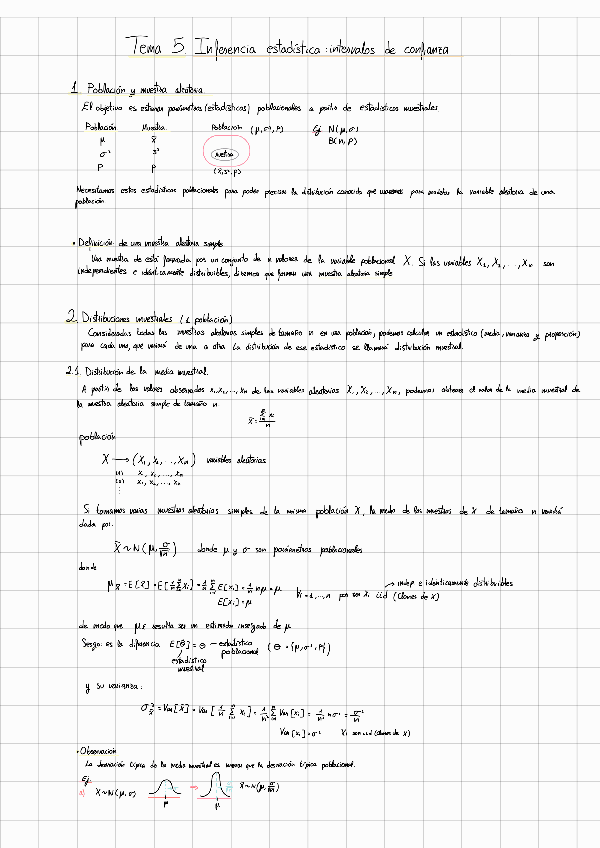 Tema 5. Inferencia estadística: intervalos de confianza
1. Población y muestra aleatoria
El objetivo es estimar parámetros (estadísticos) poblacionales a partir de estadísticos muestrales
Población Muestra Población (μ, σ², P) Ej N(μ, σ)
μ x̄ B(n, p)
σ² s² muestra
P p̂ (x̄, s², p̂)
Necesitamos estos estadísticos poblacionales para poder precisar la distribución conocida que usaremos para modelar la variable aleatoria de una
población
• Definición: de una muestra aleatoria simple
Una muestra de está formada por un conjunto de n valores de la variable poblacional X. Si las variables X₁, X₂, ..., Xₙ son
independientes e idénticamente distribuibles, diremos que forman una muestra aleatoria simple
2. Distribuciones muestrales (1 población)
Consideradas todas las muestras aleatorias simples de tamaño n en una población, podemos calcular un estadístico (media, varianza y proporción)
para cada una, que variará de una a otra. La distribución de ese estadístico se llamará distribución muestral.
2.1. Distribución de la media muestral.
A partir de los valores observados x₁, x₂, ..., xₙ de las variables aleatorias X₁, X₂, ..., Xₙ, podemos obtener el valor de la media muestral de
la muestra aleatoria simple de tamaño n.
x̄ = Σᵢ₌₁ⁿ xᵢ / n
población
X → (X₁, X₂, ..., Xₙ) variables aleatorias
(1) x₁, x₂, ..., xₙ
(2) x₁, x₂, ..., xₙ
⋮
Si tomamos varias muestras aleatorias simples de la misma población X, la media de las muestras de X de tamaño n vendrá
dada por:
X̄ ~ N(μ, σ/√n) donde μ y σ son parámetros poblacionales
donde
μ_X̄ = E[X̄] = E[1/n Σᵢ₌₁ⁿ Xᵢ] = 1/n Σᵢ₌₁ⁿ E[Xᵢ] = 1/n nμ = μ ∀i = 1, ..., n por ser Xᵢ iid (clones de X) → indep e identicamente distribuibles
E[Xᵢ] = μ
de modo que μx̄ resulta ser un estimado insesgado de μ
Sesgo: es la diferencia E[θ̂] = θ – estadístico poblacional (θ = {μ, σ², P})
estadístico
muestral
y su varianza:
σ²_X̄ = Var[X̄] = Var[1/n Σᵢ₌₁ⁿ Xᵢ] = 1/n² Σᵢ₌₁ⁿ Var[Xᵢ] = 1/n² nσ² = σ²/n
Var[Xᵢ] = σ² Xᵢ son iid (clones de X)
• Observación
La desviación típica de la media muestral es menor que la desviación típica poblacional.
Ej
a) X ~ N(μ, σ) → X̄ ~ N(μ, σ/√n)
μ μ